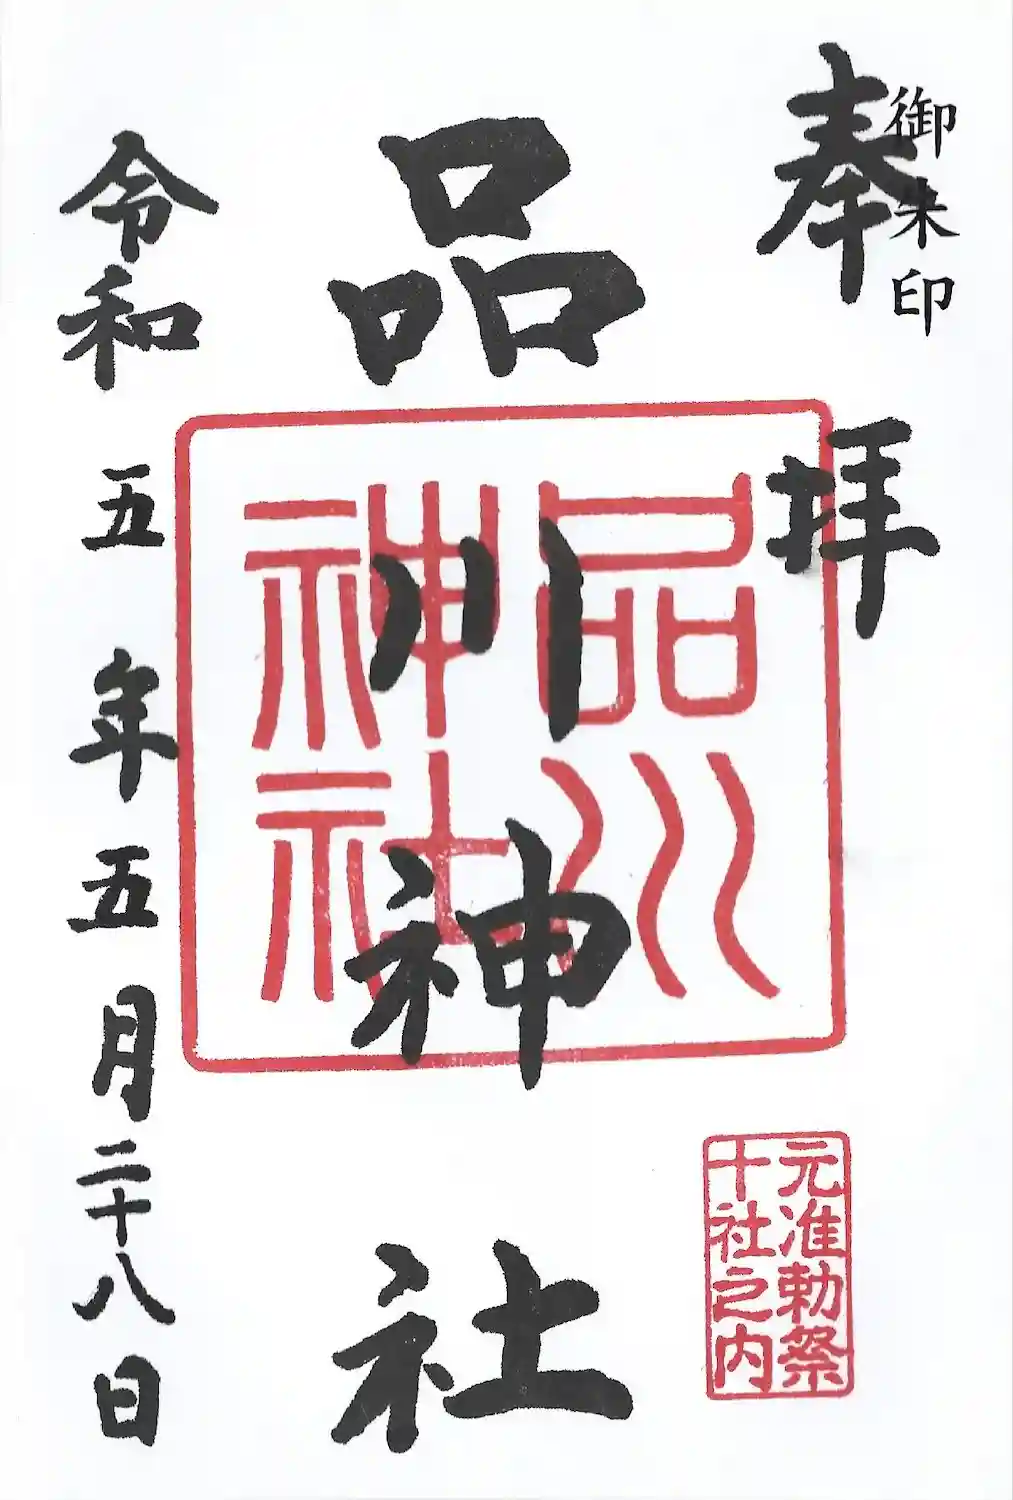 御朱印
奉拝
品川神社
品川神社
元准勅祭
十社之内
令和五年五月二十八日